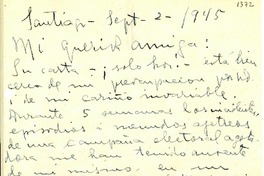 1372
Santiago - Sept - 2 - / 945
Mi querida amiga!
Su carta - ¡solo hoi! - está bien
cerca de mi preocupacion
i de mi cariño invariable.
Durante 5 semanas los incidentes,
episodios i menudos ajetreos
de una campaña electoral
me han tenido ausente
de mi mismo, en mi